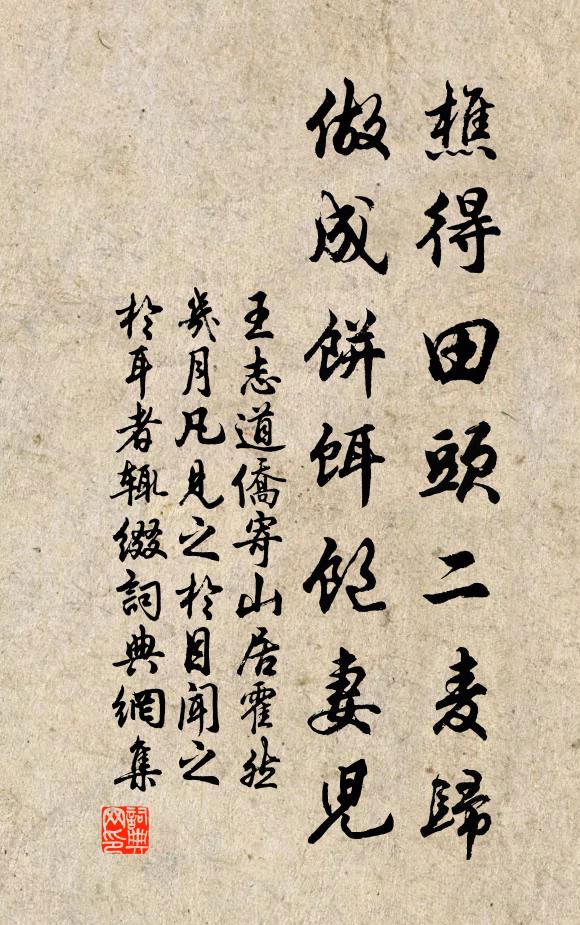 樵得田頭二麦歸
做成餅餌飽妻児
王志道僑寄山居霍然
幾月凡見之於目聞之
於耳者輙綴詞典網集
詞典
网印